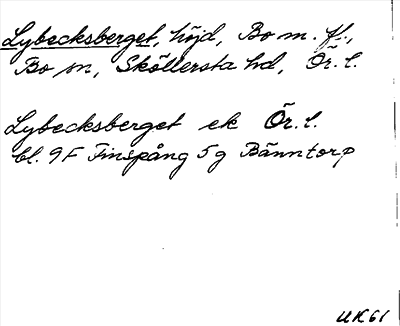 Lybecksberget, höjd, Bo m. fl.,
Bo sn, Sköllersta hd, Ör. l.
Lybecksberget ek Ör. l.
bl. 9F Finspång 5g Bänntorp
UK61